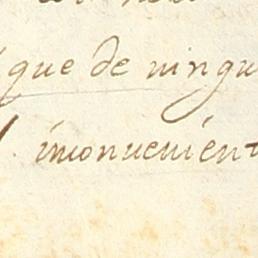 que de ningu
inconuenient